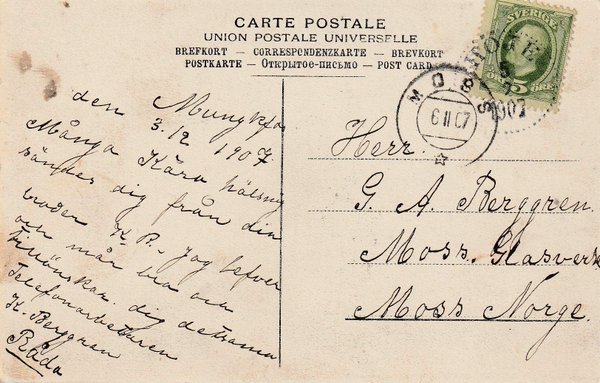 CARTE POSTALE
UNION POSTALE UNIVERSELLE
BREFKORT – CORRESPONDENZKARTE – BREVKORT
POSTKARTE – Открытое-письмо – POST CARD
SVERIGE
5 ÖRE
1907
MOSS
6 II 07
den Mungkfos
3.12 1907
Många Kära hälsnig
sändes dig från din
broder K. B. Jag lefver
och mår bra och
tillönskar dig detsama
Telefonarbetaren
K. Berggren
Råda
Herr.
G. A. Berggren.
Moss. Glasverk
Moss Norge.